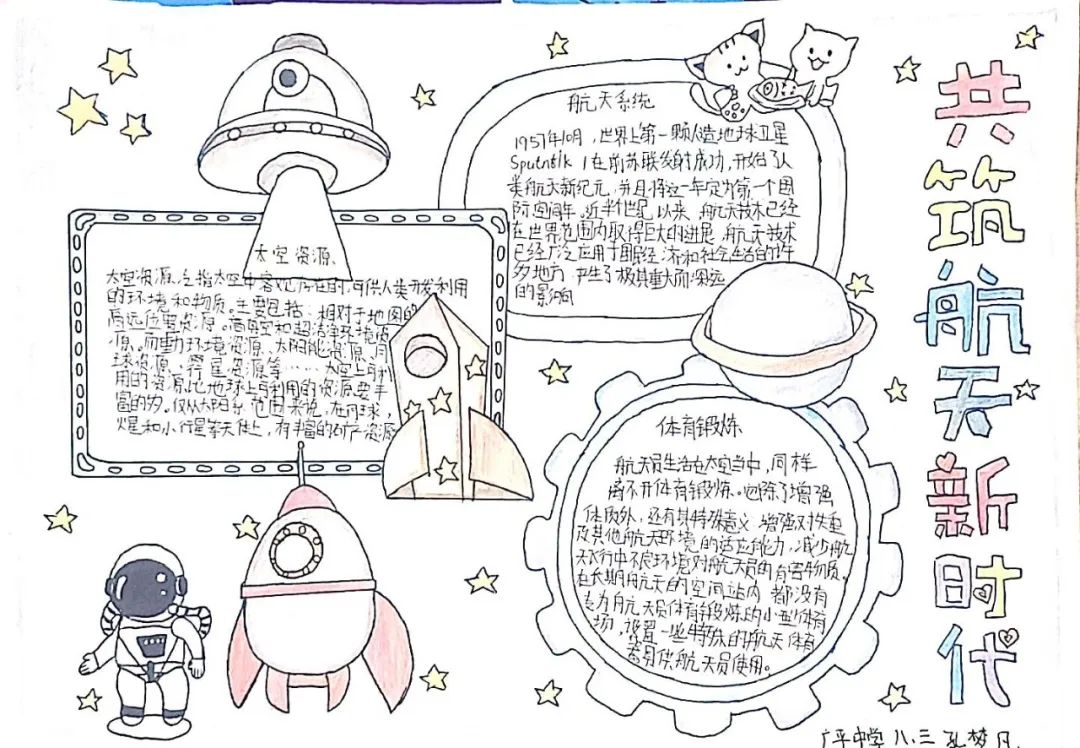 共筑航天新时代
航天系统
1957年10月，世界上第一颗人造地球卫星
Sputntlk 1在前苏联发射成功，开始了人
类航天新纪元，并且将这一年定为第一个国
际空间年。近半个世纪以来，航天技术已经
在世界范围内取得巨大的进展，航天技术
已经广泛应用于国民经济和社会生活的许
多地方，产生了极其重大而深远
的影响
太空资源
太空资源，泛指太空中客观存在的，可供人类开发利用
的环境和物质。主要包括：相对于地面的
高远位置资源。高真空和超洁净环境资
源、微重力环境资源、太阳能资源、月
球资源、行星资源等……太空上可利
用的资源比地球上可利用的资源要丰
富的多。仅从太阳系范围来说，在月球，
火星和小行星等天体上，有丰富的矿产资源
体育锻炼
航天员生活在太空当中，同样
离不开体育锻炼。它除了增强
体质外，还有其特殊意义，增强对失重
及其他航天环境的适应能力，减少航
天飞行中不良环境对航天员的有害物质。
在长期航天的空间站内，都设有
专为航天员体育锻炼的小型体育
场，设置一些特殊的航天体育
器具供航天员使用。
广平中学 八、三 孔梦